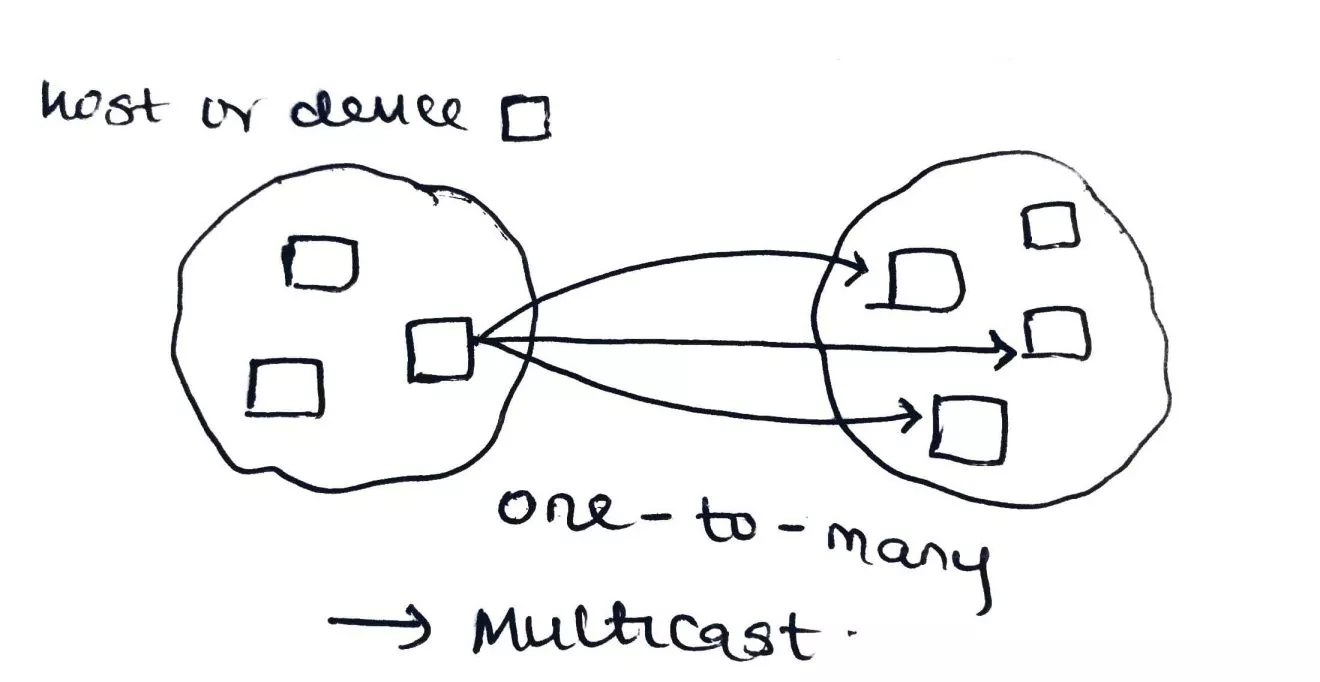 host or device
one-to-many
→ Multicast.